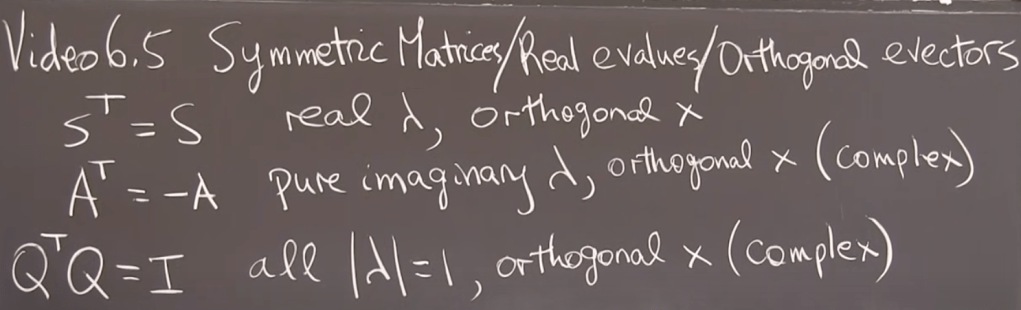 Video 6.5 Symmetric Matrices/Real evalues/Orthogonal evectors
Sᵀ = S real λ, orthogonal x
Aᵀ = -A pure imaginary λ, orthogonal x (complex)
QᵀQ = I all |λ|=1, orthogonal x (complex)